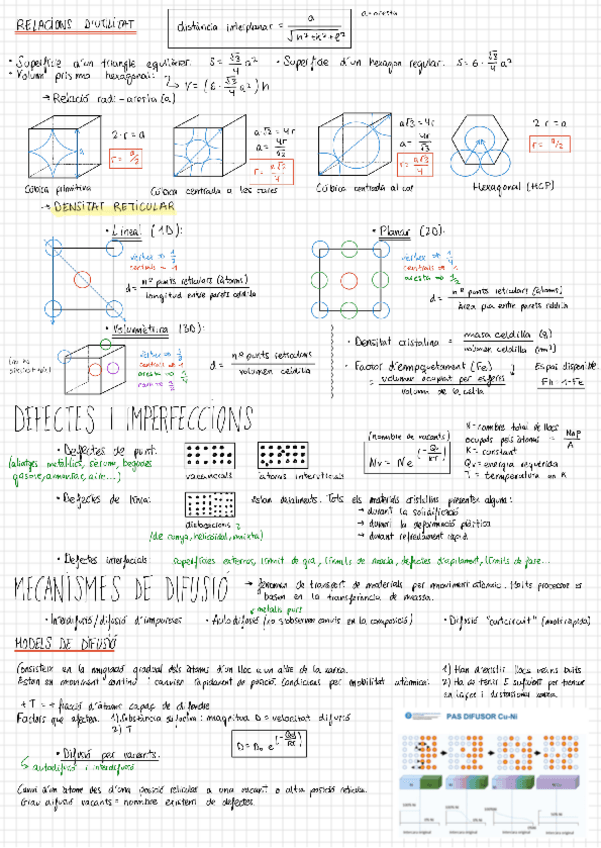 RELACIONS D'UTILITAT
distància interplanar = a / √h²+k²+l²
a = aresta
• Superfície d'un triangle equilàter: S = √3/4 a²
• Superfície d'un hexagon regular: S = 6 · √3/4 a²
• Volum prisma hexagonal: → V = (6 · √3/4 a²) h
→ Relació radi-aresta (a)
2·r = a
r = a/2
a√2 = 4r
a = 4r/√2
r = a√2/4
a√3 = 4r
a = 4r/√3
r = a√3/4
2·r = a
r = a/2
Cúbica primitiva
Cúbica centrada a les cares
Cúbica centrada al cos
Hexagonal (HCP)
→ DENSITAT RETICULAR
• Lineal (1D):
vèrtex → 1/2
centrals → 1
d = nº punts reticulars (àtoms) / longitud entre parets celdilla
• Planar (2D):
vèrtex → 1/4
centrals → 1
aresta → 1/2
d = nº punts reticulars (àtoms) / àrea pla entre parets celdilla
• Volumètrica (3D):
vèrtex → 1/8
centrals → 1
aresta → 1/4
cares → 1/2
d = nº punts reticulars / volumen celdilla
• Densitat cristalina = massa celdilla (g) / volumen celdilla (cm³)
• Factor d'empaquetament (Fe) = volumen ocupat per esferes / volum de la cel·la
Espai disponible:
1-Fe
DEFECTES I IMPERFECCIONS
• Defectes de punt.
(aliatges metàl·lics, acer...)
vacancials
àtoms intersticials
(nombre de vacants)
Nv = N e^(-Qv/kT)
N = nombre total de llocs
ocupats pels àtoms = Na·ρ/A
K = constant
Qv = energia requerida
T = temperatura en K
• Defectes de línea:
dislocacions
(de cunya, helicoïdal, mixta)
estan desalineats. Tots els materials cristal·lins presenten alguna:
→ durant la solidificació
→ durant la deformació plàstica
→ durant refredament ràpid
• Defectes interfacials
superfícies externes, límit de gra, límits de macla, defectes d'apilament, límits de fase...
MECANISMES DE DIFUSIÓ
→ fenomen de transport de materials per moviment atòmic. Molts processos es
basen en la transferència de massa.
metalls purs
• Interdifusió / difusió d'impureses
• Autodifusió (no s'observen canvis en la composició)
• Difusió "curtcircuit" (molt ràpida)
MODELS DE DIFUSIÓ
Consisteix en la migració gradual dels àtoms d'un lloc a un altre de la xarxa.
Estan en moviment continu i canvien ràpidament de posició. Condicions per mobilitat atòmica:
1) Han d'existir llocs veïns buits
2) Ha de tenir E suficient per trencar
enllaços i distorsionar xarxa
+ T = + fracció d'àtoms capaç de difondre
Factors que afecten: 1) Substància soluto: magnitud D = velocitat difusió
2) T
D = D₀ e^(-Qd/RT)
• Difusió per vacants.
→ autodifusió i interdifusió
Canvi d'un àtom des d'una posició reticular a una vacant o altra posició reticular.
Grau difusió vacants = nombre existent de defectes.
PAS DIFUSOR Cu-Ni